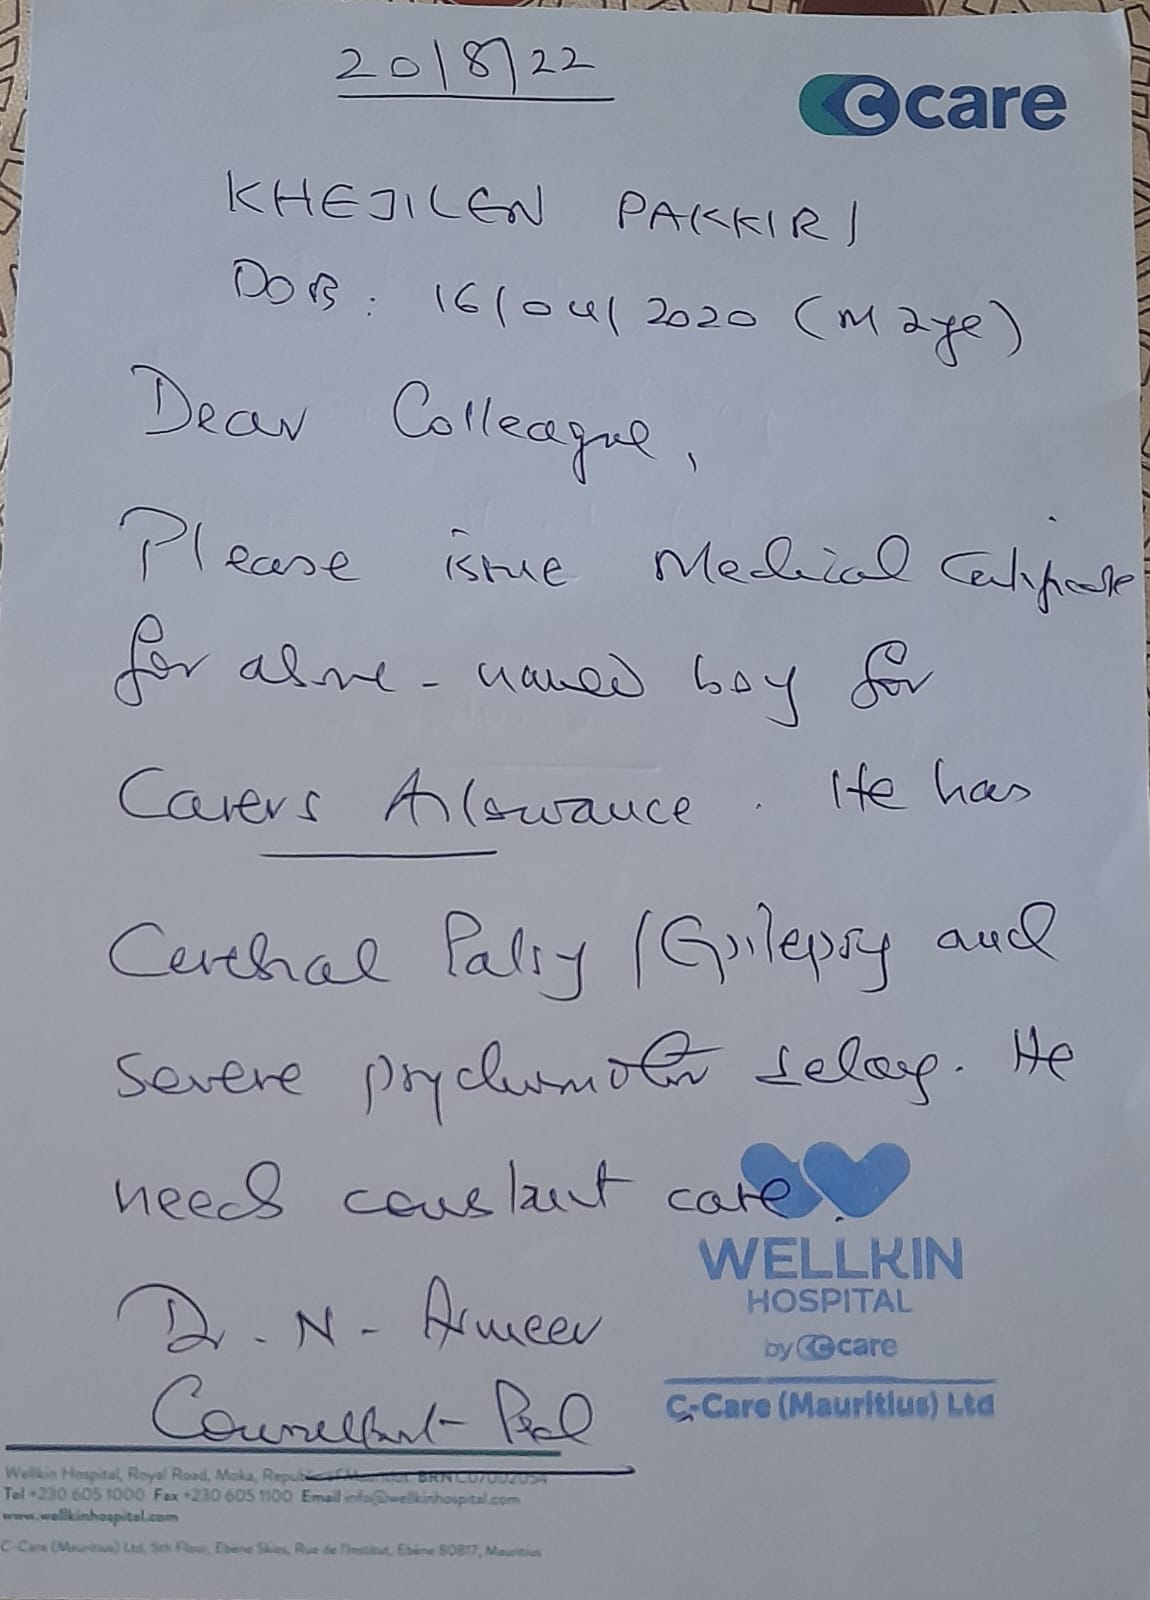 20/8/22
care
KHEJILEN PAKKIRI
DOB: 16/04/2020 (M age)
Dear Colleague,
Please issue Medical Certificate
for above-named boy for
Carers Allowance. He has
Cerebral Palsy / Epilepsy and
severe psychomotor delay. He
needs constant care.
WELLKIN
HOSPITAL
by care
C-Care (Mauritius) Ltd
Dr. N. Ameer
Consultant Paed
Wellkin Hospital, Royal Road, Moka, Republic of Mauritius. BRN C07002054
Tel +230 605 1000 Fax +230 605 1100 Email info@wellkinhospital.com
www.wellkinhospital.com
C-Care (Mauritius) Ltd, 5th Floor, Ebène Skies, Rue de l'Institut, Ebène 80817, Mauritius